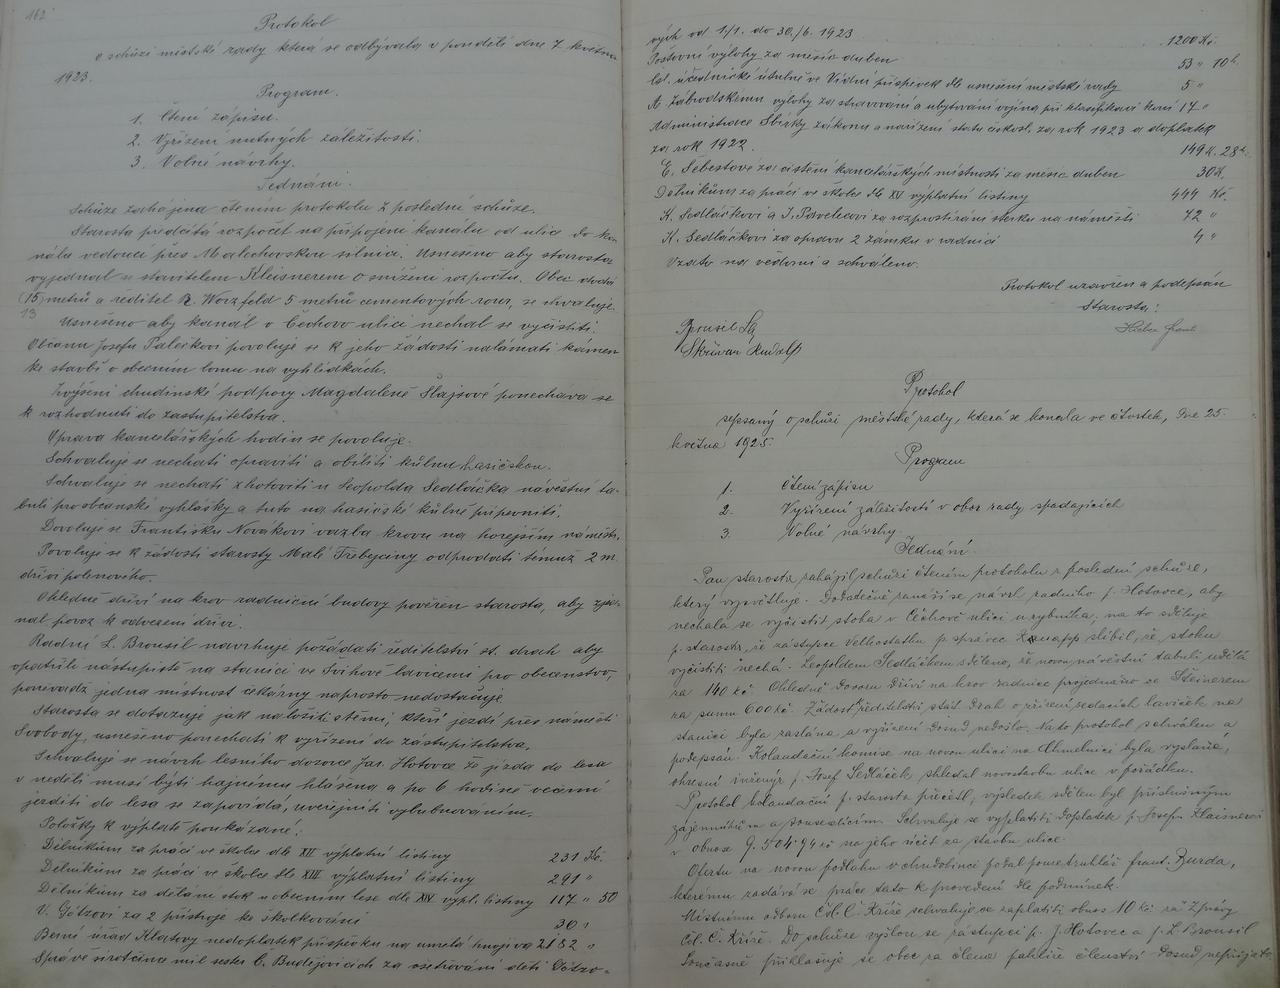 162
Protokol
o schůzi městské rady která se odbývala v pondělí dne 7. května
1923.
Program.
1. Čtení zápisu.
2. Vyřízení nutných záležitostí.
3. Volné návrhy.
Jednání.
Schůze zahájena čtením protokolu z poslední schůze.
Starosta předčítá rozpočet na připojení kanálu od ulice do ka-
nálu vedoucí přes Malechovskou silnici. Usneseno aby starosta
vyjednal se stavitelem Kleisnerem o snížení rozpočtu. Obec dodá
(15) metrů a ředitel R. Worzfeld 5 metrů cementových rour, se schvaluje.
13
Usneseno aby kanál v Čechovo ulici nechal se vyčistiti.
Občanu Josefu Palečkovi povoluje se k jeho žádosti nalámati kámen
ke stavbě v obecním lomu na vyhlídkách.
Zvýšení chudinské podpory Magdaleně Šlajsové ponechává se
k rozhodnutí do zastupitelstva.
Oprava kancelářských hodin se povoluje.
Schvaluje se nechati opraviti a obíliti kůlnu hasičskou.
Schvaluje se nechati zhotoviti u Leopolda Sedláčka návěstní ta-
buli pro občanské vyhlášky a tuto na hasičské kůlně připevniti.
Dovoluje se Františku Novákovi vazba krovu na hořejším náměstí.
Povoluje se k žádosti starosty Malé Třebyciny odprodati témuž 2 m
dříví polenového.
Ohledně dříví na krov radniční budovy pověřen starosta, aby zjed-
nal povoz k odvezení dříví.
Radní L. Brousil navrhuje požádati ředitelství st. drah aby
opatřilo nástupiště na stanici ve Švihově lavicemi pro obecenstvo,
poněvadž jedna místnost čekárny naprosto nedostačuje.
Starosta se dotazuje jak naložiti s těmi, kteří jezdí přes náměstí
Svobody, usneseno ponechati k vyřízení do zastupitelstva.
Schvaluje se návrh lesního dozorce Jar. Hotovce že jízda do lesa
v neděli musí býti hajnému hlášena a po 6 hodině večerní
jezditi do lesa se zapovídá, uveřejniti vybubnováním.
Položky k výplatě poukázané:
Dělníkům za práci ve školce dle XII výplatní listiny 231 Kč.
Dělníkům za práci ve školce dle XIII výplatní listiny 291 "
Dělníkům za dělání stok v obecním lese dle XIV výpl. listiny 117 " 50
V. Götzovi za 2 přístroje ke školkování 30 "
Berní úřad Klatovy nedoplatek příspěvku na umělá hnojiva 2182 "
Správě sirotčince mil. sester Č. Budějovicích za ošetřování dětí
vých od 1./1. do 30./6. 1923 1200 Kč.
Poštovní výlohy za měsíc duben 53 " 10 h.
čsl. učednické útulně ve Vídni příspěvek dle usnesení městské rady 5 "
A. Zábrodskému výlohy za stravování a ubytování vojína při klasifikaci koní 17 "
Administrace Sbírky zákonů a nařízení státu českosl. za rok 1923 a doplatek
za rok 1922. 149 K. 28 h.
C. Šebestové za čistění kancelářských místností za měsíc duben 30 K.
Dělníkům za práci ve školce dle XV výplatní listiny 444 Kč.
K. Sedláčkovi a J. Pavelcovi za rozprostírání štěrku na náměstí 72 "
K. Sedláčkovi za opravu 2 zámků v radnici 4 "
Vzato na vědomí a schváleno.
Protokol uzavřen a podepsán
Starosta:
Brousil
Skřivan Rudolf
Protokol
sepsaný o schůzi městské rady, která se konala ve čtvrtek, dne 25.
května 1923.
Program
1. Čtení zápisu
2. Vyřízení záležitostí v obor rady spadajících
3. Volné návrhy
Jednání.
Pan starosta zahájil schůzi čtením protokolu z poslední schůze,
který vysvětluje. Dodatečně zanáší se návrh radního p. Hotovce, aby
nechala se vyčistit stoka v Čechově ulici u rybníka, na to sděluje
p. starosta, že zástupce velkostatku p. správce Knapp slíbil, že stoku
vyčistiti nechá. Leopoldem Sedláčkem sděleno, že novou návěstní tabuli udělá
za 140 kč. Ohledně dovozu dříví na krov radnice projednáno se Steinerem
za sumu 600 kč. Žádost ředitelství stát. drah o zřízení sedacích laviček na
stanici byla zaslána a vyřízení dosud nedošlo. Na to protokol schválen a
podepsán. Kolaudační komise na novou ulici na Chmelnici byla vyslána,
okresní inženýr p. Josef Sedláček shledal novostavbu ulice v pořádku.
Protokol kolaudační p. starosta přečetl, výsledek sdělen byl příslušným
zájemníkům a sousedícím. Schvaluje se vyplatiti doplatek p. Josefu Klaisnerovi
v obnose 9.504.94 kč na jeho účet za stavbu ulice.
Ofertu na novou podlahu v chudobinci podal pouze truhlář frant. Burda,
kterému zadává se práce tato k provedení dle podmínek.
Místnímu odboru Čsl. Č. Kříže schvaluje se zaplatiti obnos 10 kč za Zprávy
Čsl. Č. Kříže. Do schůze vyšlou se zástupci p. J. Hotovec a p. L. Brousil
Současně přihlašuje se obec za člena jakožto členství dosud nepřijato